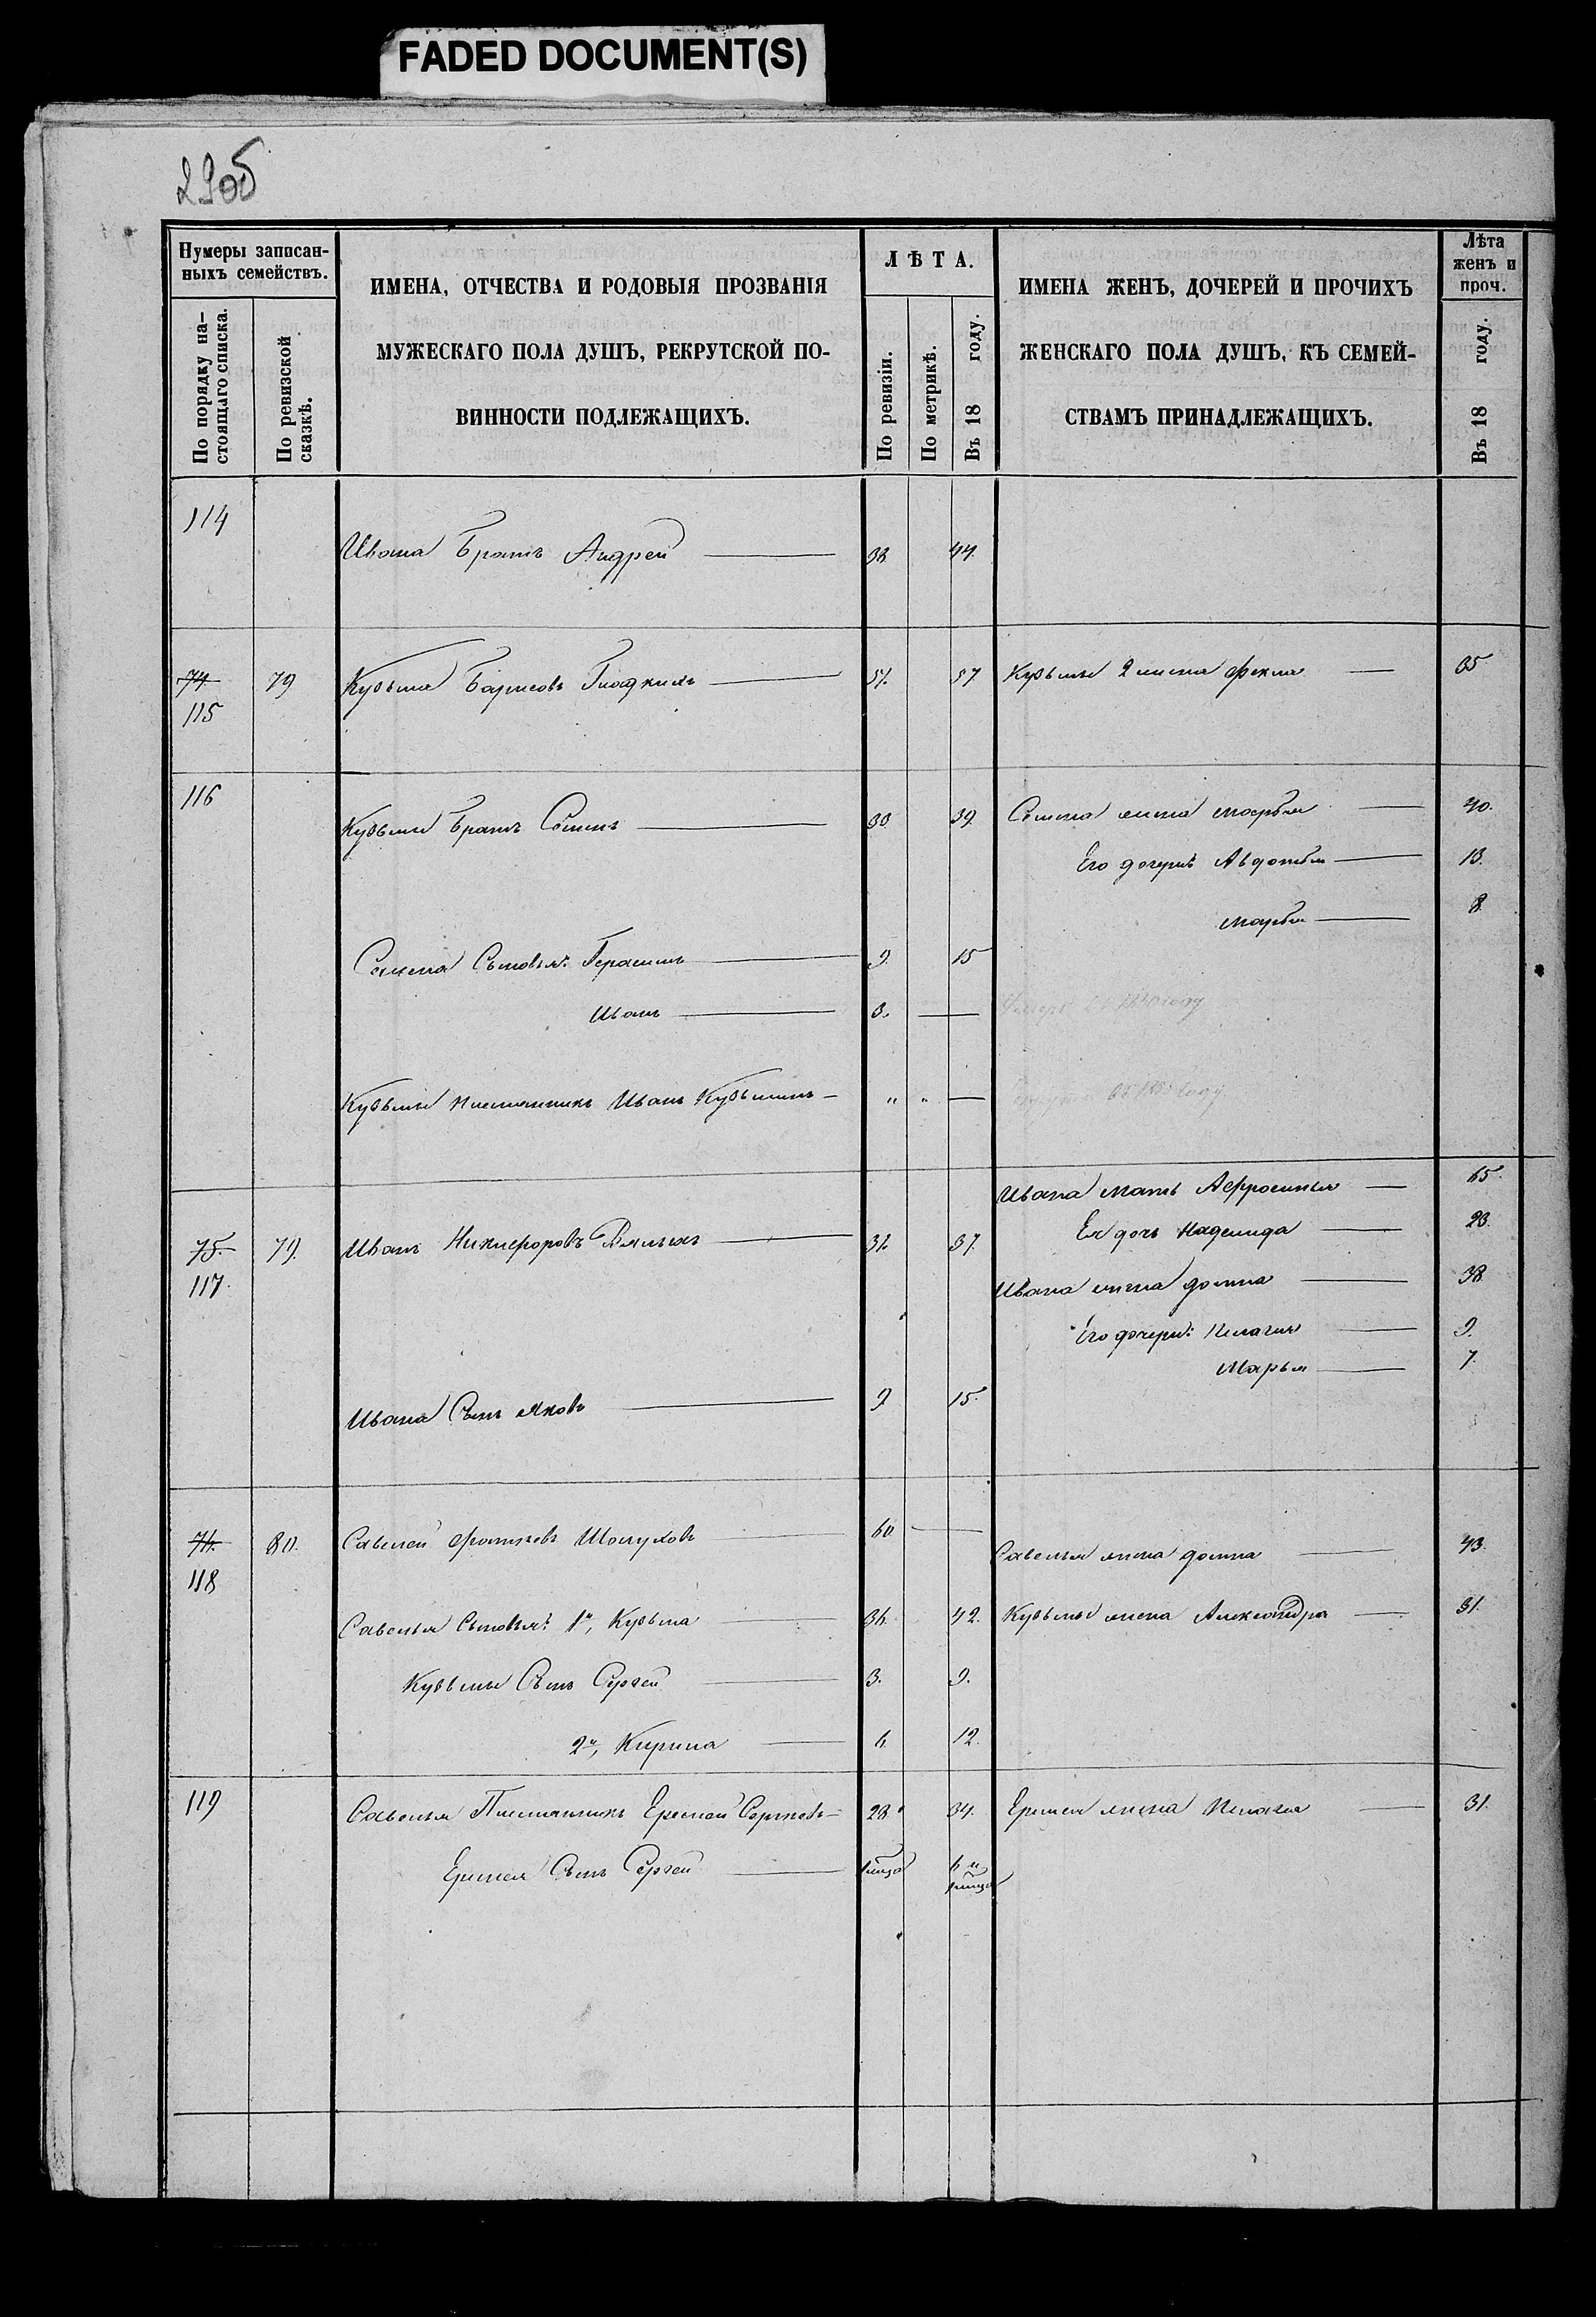 FADED DOCUMENT(S)
29об
Нумеры записан-
ныхъ семействъ.
По порядку на-
стоящаго списка.
По ревизской
сказкѣ.
ИМЕНА, ОТЧЕСТВА И РОДОВЫЯ ПРОЗВАНІЯ
МУЖЕСКАГО ПОЛА ДУШЪ, РЕКРУТСКОЙ ПО-
ВИННОСТИ ПОДЛЕЖАЩИХЪ.
ЛѢТА.
По ревизіи.
По метрикѣ.
Въ 18 году.
ИМЕНА ЖЕНЪ, ДОЧЕРЕЙ И ПРОЧИХЪ
ЖЕНСКАГО ПОЛА ДУШЪ, КЪ СЕМЕЙ-
СТВАМЪ ПРИНАДЛЕЖАЩИХЪ.
Лѣта
женъ и
проч.
Въ 18 году.
114
Ивана Братъ Андрей — 38 44.
74 79 Кузьма Барисовъ — 51. 57 Кузьмы 2 жена Фекла — 65
115
116
Кузьмы Братъ Семенъ — 33 39. Семена жена Марья — 40.
Его дочери Авдотья — 13.
Марья — 8
Семена Сыновья: Герасимъ — 9. 15
Иванъ — 3. — году
Кузьмы племянникъ Иванъ Кузьминъ — " " — году
Ивана мать Афросинья — 65.
Ея дочь Надежида — 23.
75. 79. Иванъ Никифоровъ — 31. 37.
117.
Ивана жена Домна — 38
Его дочери: Пелагия — 9.
Марья — 7.
Ивана Сынъ Яковъ — 9 15.
76. 80. Савелей — 60 —
118
Савелья жена Домна — 43.
Савелья Сыновья: 1й, Кузьма — 36. 42. Кузьмы жена Александра — 31.
Кузьмы Сынъ Сергей — 3. 9.
2й, Кирила — 6. 12.
119
Савелья Племянникъ Еремей Сергеевъ — 28 34. Еремея жена Пелагея — 31.
Еремея Сынъ Сергей — 6 и